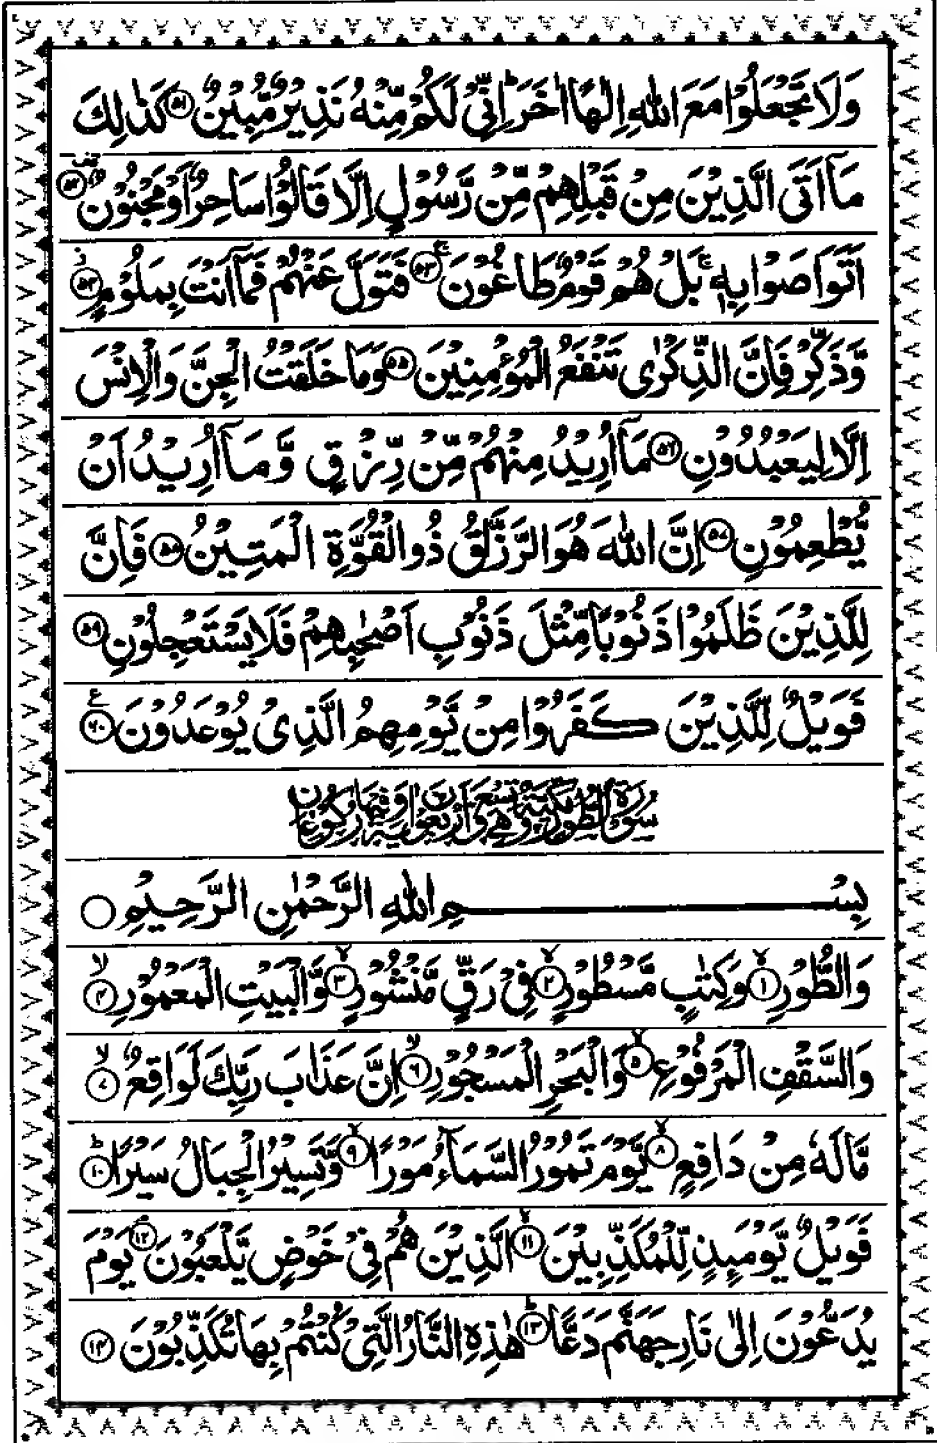 وَلَا تَجْعَلُوْا مَعَ اللّٰهِ اِلٰهًا اٰخَرَ ؕ اِنِّیْ لَكُمْ مِّنْهُ نَذِیْرٌ مُّبِیْنٌ ۟ۚ ﴿۵۱﴾ كَذٰلِكَ
مَاۤ اَتَی الَّذِیْنَ مِنْ قَبْلِهِمْ مِّنْ رَّسُوْلٍ اِلَّا قَالُوْا سَاحِرٌ اَوْ مَجْنُوْنٌ ﴿۵۲﴾ قف
اَتَوَاصَوْا بِهٖ ۚ بَلْ هُمْ قَوْمٌ طَاغُوْنَ ﴿۵۳﴾ ۚ فَتَوَلَّ عَنْهُمْ فَمَاۤ اَنْتَ بِمَلُوْمٍ ﴿۵۴﴾ ؗ
وَّذَكِّرْ فَاِنَّ الذِّكْرٰی تَنْفَعُ الْمُؤْمِنِیْنَ ﴿۵۵﴾ وَمَا خَلَقْتُ الْجِنَّ وَالْاِنْسَ
اِلَّا لِیَعْبُدُوْنِ ﴿۵۶﴾ مَاۤ اُرِیْدُ مِنْهُمْ مِّنْ رِّزْقٍ وَّمَاۤ اُرِیْدُ اَنْ
یُّطْعِمُوْنِ ﴿۵۷﴾ اِنَّ اللّٰهَ هُوَ الرَّزَّاقُ ذُو الْقُوَّةِ الْمَتِیْنُ ﴿۵۸﴾ فَاِنَّ
لِلَّذِیْنَ ظَلَمُوْا ذَنُوْبًا مِّثْلَ ذَنُوْبِ اَصْحٰبِهِمْ فَلَا یَسْتَعْجِلُوْنِ ﴿۵۹﴾
فَوَیْلٌ لِّلَّذِیْنَ كَفَرُوْا مِنْ یَّوْمِهِمُ الَّذِیْ یُوْعَدُوْنَ ﴿۶۰﴾ ع
سُوْرَةُ الطُّوْرِ مَكِّیَّةٌ وَّهِیَ تِسْعٌ وَّاَرْبَعُوْنَ اٰیَةً وَّفِیْهَا رُكُوْعَانِ
بِسْمِ اللّٰهِ الرَّحْمٰنِ الرَّحِیْمِ
وَالطُّوْرِ ﴿۱﴾ ۙ وَكِتٰبٍ مَّسْطُوْرٍ ﴿۲﴾ ۙ فِیْ رَقٍّ مَّنْشُوْرٍ ﴿۳﴾ ۙ وَّالْبَیْتِ الْمَعْمُوْرِ ﴿۴﴾ ۙ
وَالسَّقْفِ الْمَرْفُوْعِ ﴿۵﴾ ۙ وَالْبَحْرِ الْمَسْجُوْرِ ﴿۶﴾ ۙ اِنَّ عَذَابَ رَبِّكَ لَوَاقِعٌ ﴿۷﴾ ۙ
مَّا لَهٗ مِنْ دَافِعٍ ﴿۸﴾ ۙ یَّوْمَ تَمُوْرُ السَّمَآءُ مَوْرًا ﴿۹﴾ ۙ وَّتَسِیْرُ الْجِبَالُ سَیْرًا ﴿۱۰﴾ ؕ
فَوَیْلٌ یَّوْمَىِٕذٍ لِّلْمُكَذِّبِیْنَ ﴿۱۱﴾ ۙ الَّذِیْنَ هُمْ فِیْ خَوْضٍ یَّلْعَبُوْنَ ﴿۱۲﴾ ۘ یَوْمَ
یُدَعُّوْنَ اِلٰی نَارِ جَهَنَّمَ دَعًّا ﴿۱۳﴾ ؕ هٰذِهِ النَّارُ الَّتِیْ كُنْتُمْ بِهَا تُكَذِّبُوْنَ ﴿۱۴﴾